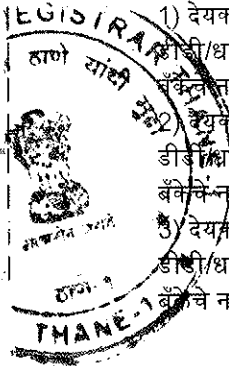 REGISTRAR
ठाणे यांची मु
THANE-1
ठाणे-1
1) देयक
डीडी/ध
बँकेचे न
2) देयक
डीडी/ध
बँकेचे न
3) देयक
डीडी/ध
बँकेचे न